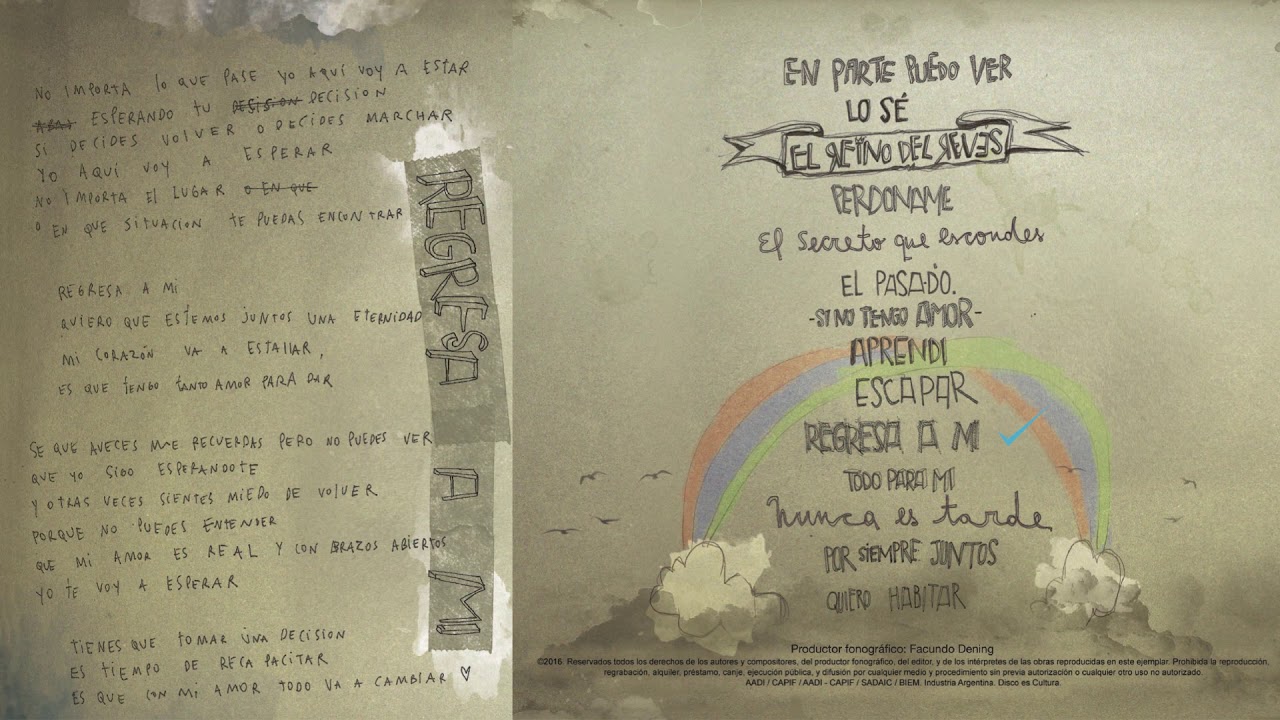 NO IMPORTA lo QUE PASE YO AQUÍ VOY A ESTAR
ESPERANDO TU DESISION DECISION
SI DECIDES VOLVER O DECIDES MARCHAR
YO AQUÍ VOY A ESPERAR
NO IMPORTA El LUGAR O EN QUE
O EN QUE SITUACION TE PUEDAS ENCONTRAR
REGRESA A Mi
QUIERO QUE ESTEMOS JUNTOS UNA ETERNIDAD
Mi CORAZÓN VA A ESTALLAR,
ES QUE TENGO TANTO AMOR PARA DAR
SE QUE AVECES ME RECUERDAS PERO NO PUEDES VER
QUE YO SIDO ESPERANDOTE
Y OTRAS VECES SIENTES MIEDO DE VOlVER
PORQUE NO PUEDES ENTENDER
QUE MI AMOR ES REAL Y CON BRAZOS ABIERTOS
YO TE VOY A ESPERAR
TIENES QUE TOMAR UNA DECISION
ES TIEMPO DE RECAPACITAR
ES QUE CON MI AMOR TODO VA A CAMBIAR
REGRESA A MI
EN PARTE PUEDO VER
LO SÉ
EL REINO DEL REVES
PERDONAME
El Secreto que escondes
EL PASADO.
-SI NO TENGO AMOR-
APRENDI
ESCAPAR
REGRESA A MI
TODO PARA MI
Nunca es tarde
POR SIEMPRE JUNTOS
QUIERO HABITAR
Productor fonográfico: Facundo Dening
©2016 Reservados todos los derechos de los autores y compositores, del productor fonográfico, del editor, y de los intérpretes de las obras reproducidas en este ejemplar. Prohibida la reproducción,
regrabación, alquiler, préstamo, canje, ejecución pública, y difusión por cualquier medio y procedimiento sin previa autorización o cualquier otro uso no autorizado.
AADI / CAPIF / AADI - CAPIF / SADAIC / BIEM. Industria Argentina. Disco es Cultura.